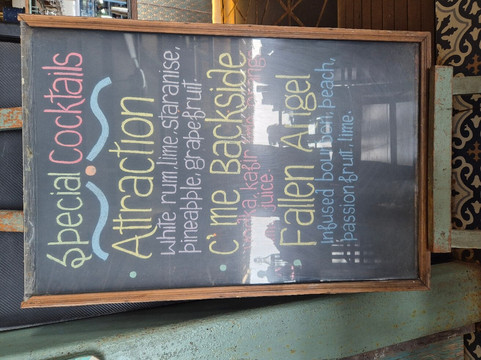 Special Cocktails
Attraction
White rum, lime, staranise,
pineapple, grapefruit
C'me Backside
vodka, kafir
juice.
Fallen Angel
Infused bourbon, peach,
passion fruit, lime.